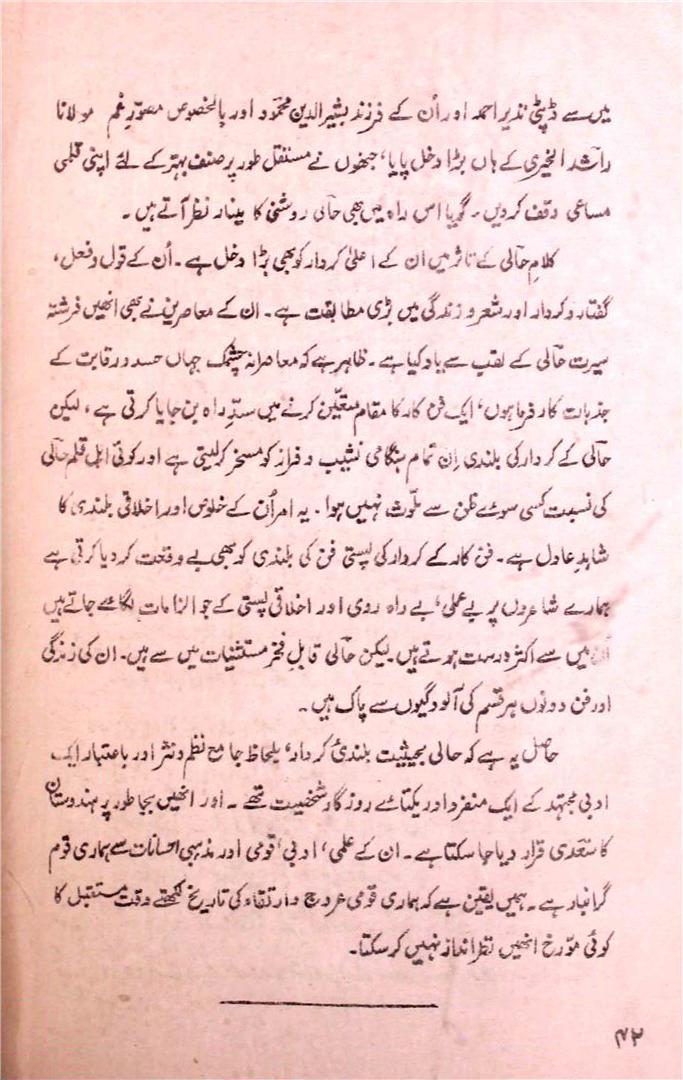 میں سے ڈپٹی نذیر احمد اور اُن کے فرزند بشیر الدین محمود اور بالخصوص مصوّرِ غم مولانا
راشد الخیری کے ہاں بڑا دخل پایا، جنھوں نے مستقل طور پر صنف بہتر کے لئے اپنی قلمی
مساعی وقف کر دیں۔ گویا اس راہ میں بھی حالی روشنی کا مینار نظر آتے ہیں۔
کلامِ حالی کے تاثر میں ان کے اعلیٰ کردار کو بھی بڑا دخل ہے۔ اُن کے قول و فعل،
گفتار و کردار اور شعر و زندگی میں بڑی مطابقت ہے۔ ان کے معاصرین نے بھی انھیں فرشتہ
سیرت حالی کے لقب سے یاد کیا ہے۔ ظاہر ہے کہ معاصرانہ چشمک جہاں حسد و رقابت کے
جذبات کار فرما ہوں، ایک فن کار کا مقام متعیّن کرنے میں سدِّ راہ بن جایا کرتی ہے، لیکن
حالی کے کردار کی بلندی اِن تمام ہنگامی نشیب و فراز کو مسخر کر لیتی ہے اور کوئی اہل قلم حالی
کی نسبت کسی سوئے ظن سے ملوّث نہیں ہوا۔ یہ امر اُن کے خلوص اور اخلاقی بلندی کا
شاہدِ عادل ہے۔ فن کار کے کردار کی پستی فن کی بلندی کو بھی بے وقعت کر دیا کرتی ہے
ہمارے شاعروں پر بے عملی، بے راہ روی اور اخلاقی پستی کے جو الزامات لگائے جاتے ہیں
اُن میں سے اکثر درست ہوتے ہیں۔ لیکن حالی قابلِ فخر مستثنیات میں سے ہیں۔ ان کی زندگی
اور فن دونوں ہر قسم کی آلودگیوں سے پاک ہیں۔
حاصل یہ ہے کہ حالی بحیثیت بلندیٔ کردار، بلحاظ جامع نظم و نثر اور باعتبار ایک
ادبی مجتہد کے ایک منفرد اور یکتائے روزگار شخصیت تھے۔ اور انھیں بجا طور پر ہندوستان
کا سعدی قرار دیا جا سکتا ہے۔ ان کے علمی، ادبی، قومی اور مذہبی احسانات سے ہماری قوم
گرانبار ہے۔ ہمیں یقین ہے کہ ہماری قومی عروج و ارتقاء کی تاریخ لکھتے وقت مستقبل کا
کوئی مؤرخ انھیں نظر انداز نہیں کر سکتا۔
۴۲